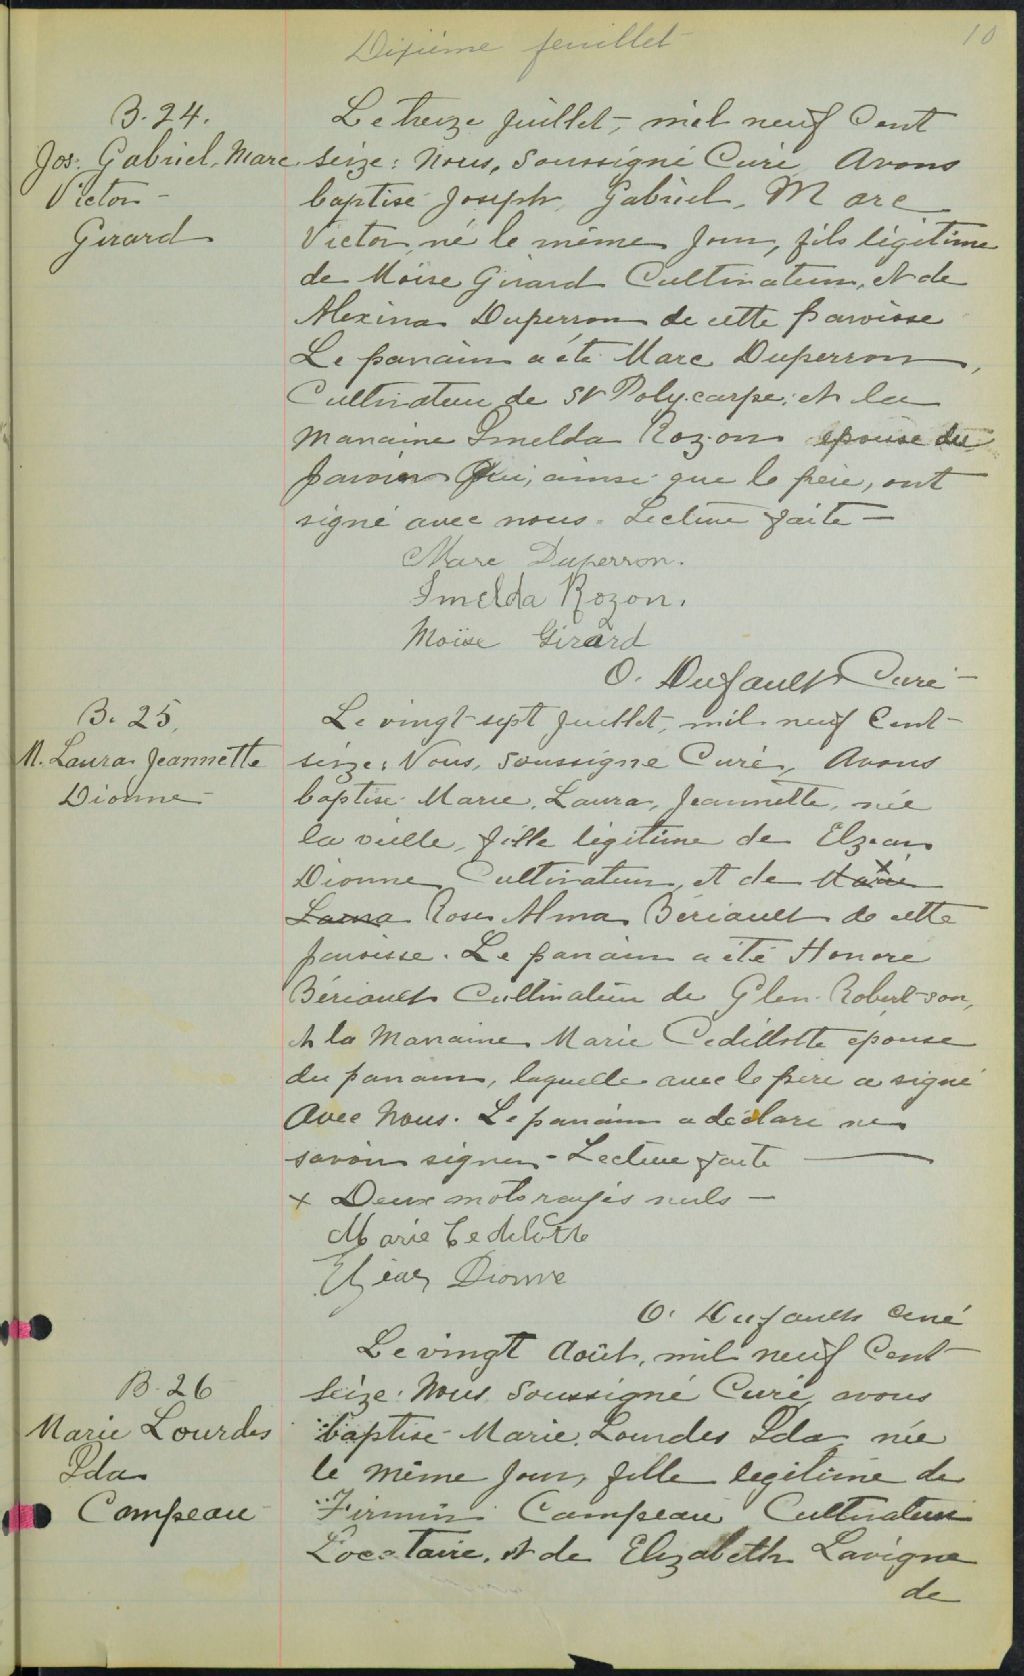 Dixième feuillet
10
B. 24.
Jos. Gabriel, Marc
Victor
Girard
Le treize Juillet, mil neuf Cent
seize: Nous, Soussigné Curé, Avons
baptisé Joseph, Gabriel, Marc
Victor, né le même Jour, fils légitime
de Moïse Girard Cultivateur, et de
Alexina Duperron de cette paroisse
Le parrain a été Marc Duperron,
Cultivateur de St Polycarpe; et la
Marraine Imelda Rozon épouse du
parrain Qui, ainsi que le père, ont
signé avec nous. Lecture faite —
Marc Duperron.
Imelda Rozon.
Moïse Girard
O. Dufault Curé —
B. 25,
M. Laura Jeannette
Dionne
Le vingt-sept Juillet, mil neuf Cent
seize: Nous, Soussigné Curé, Avons
baptisé Marie, Laura, Jeannette, née
la veille, fille légitime de Elzéar
Dionne, Cultivateur, et de Marie x
Laura Rose Alma Bériault de cette
paroisse. Le parrain a été Honoré
Bériault Cultivateur de Glen-Robertson,
et la Marraine Marie Cedillotte épouse
du parrain, laquelle avec le père a signé
Avec Nous. Le parrain a déclaré ne
savoir signer - Lecture faite —
x Deux mots rayés nuls —
Marie Cedilotte
Elzéar Dionne
O. Dufault curé
B. 26
Marie Lourdes
Ida
Campeau
Le vingt Août, mil neuf Cent
Seize: Nous Soussigné Curé, avons
baptisé Marie, Lourdes Ida, née
le même Jour, fille legitime de
Firmin Campeau Cultivateur
Locataire, et de Elizabeth Lavigne
de